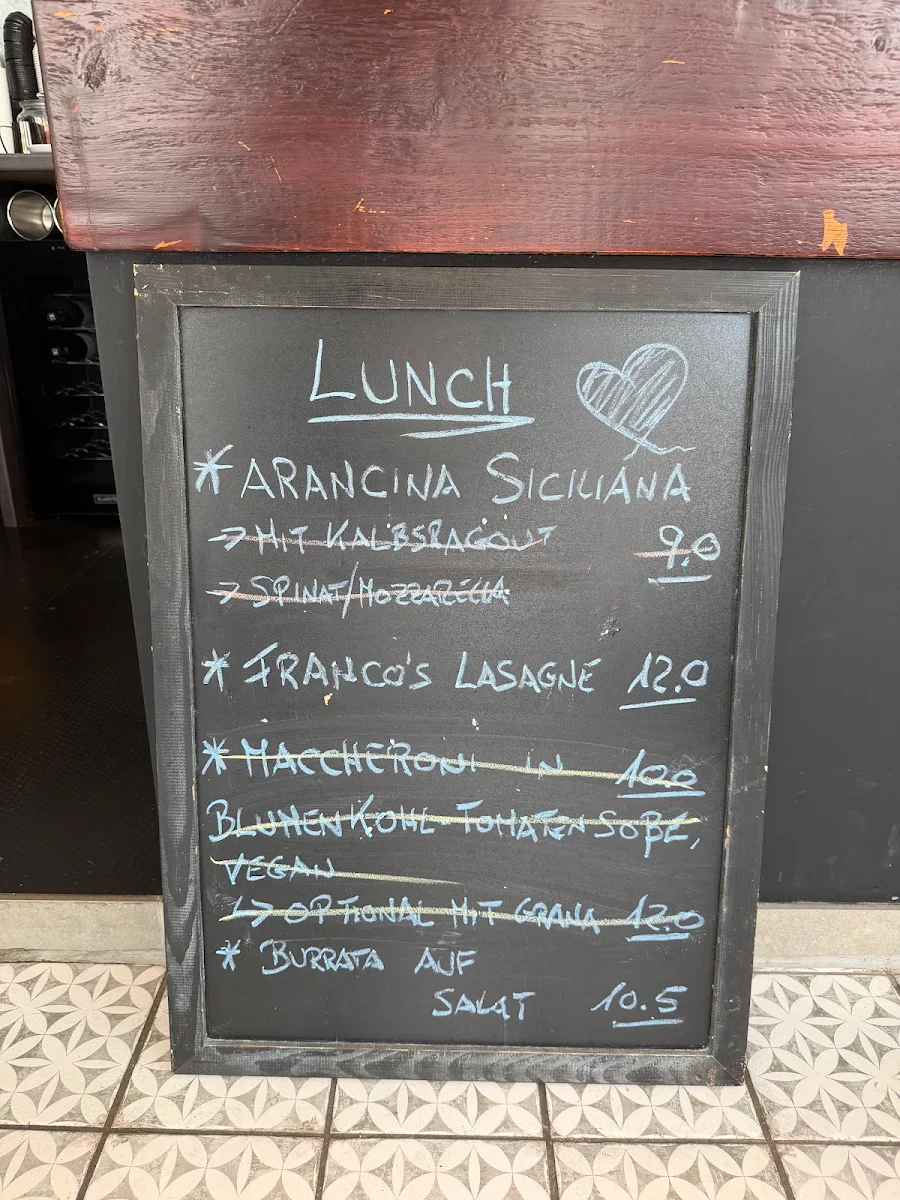 LUNCH
* ARANCINA SICILIANA
→ MIT KALBSRAGOUT 9,0
→ SPINAT/MOZZARELLA
* FRANCO'S LASAGNE 12.0
* MACCHERONI IN 10.0
BLUMENKOHL-TOMATEN SOßE,
VEGAN
↳ OPTIONAL MIT GRANA 12.0
* BURRATA AUF
SALAT 10.5